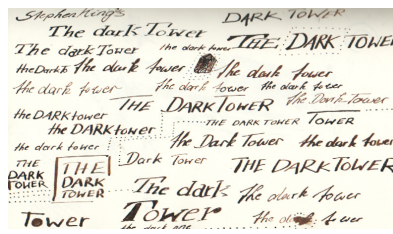 Stephen King's
DARK TOWER
The dark Tower
The dark Tower
the dark tower
THE DARK TOWER
the Dark To
the dark tower
the dark tower
the dark tower
the dark tower
the dark tower
THE DARKTOWER
the Dark Tower
the DARKtower
THE DARK TOWER TOWER
the DARKtower
the dark tower
the Dark Tower
the dark tower
Dark Tower
THE
DARK
TOWER
THE
DARK
TOWER
THE DARK TOWER
The dark
Tower
the dark tower
Tower
the da tower
the dark one